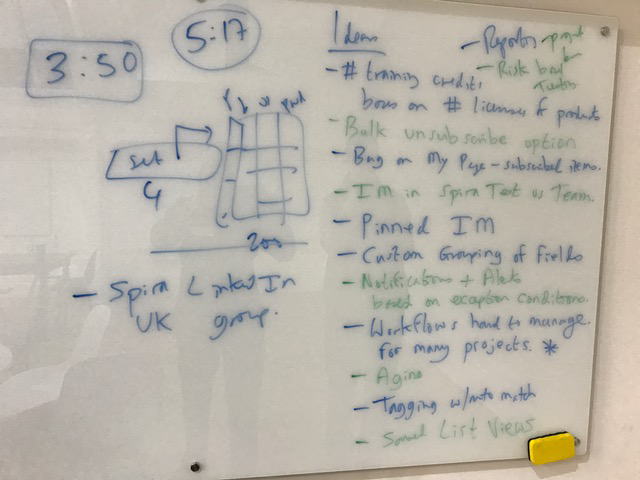 3:50
5:17
set
4
200
- Spira LinkedIn
UK group.
Ideas
- # training credits
- Risk based
bases on # licenses & products
- Bulk unsubscribe option
- Bug on My Page - subscribed items.
- IM in SpiraTest vs Team.
- Pinned IM
- Custom Grouping of fields
- Notifications + Alerts
based on exception conditions.
- Workflows hard to manage.
for many projects. *
- Aging
- Tagging w/auto match
- List Views